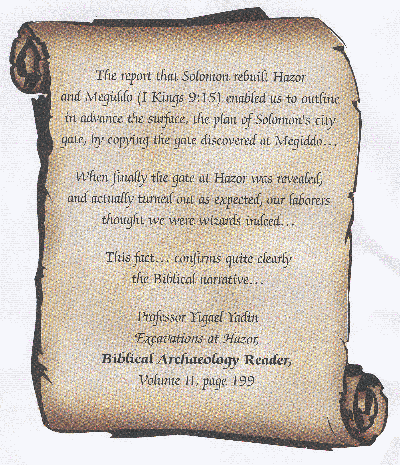 The report that Solomon rebuilt Hazor
and Megiddo (I Kings 9:15) enabled us to outline
in advance the surface, the plan of Solomon's city
gate, by copying the gate discovered at Megiddo...
When finally the gate at Hazor was revealed,
and actually turned out as expected, our laborers
thought we were wizards indeed...
This fact... confirms quite clearly
the Biblical narrative...
Professor Yigael Yadin
Excavations at Hazor,
Biblical Archaeology Reader,
Volume II, page 199